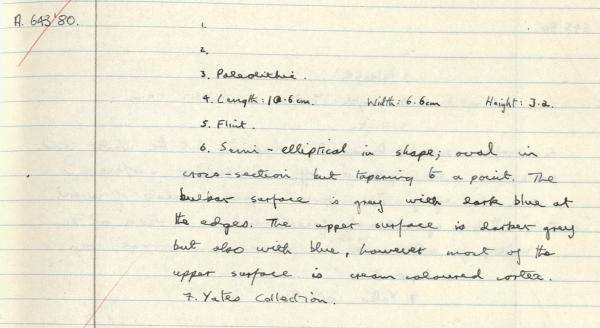 A. 643'80.
1.
2.
3. Paleolithic.
4. Length: 10.6cm. Width: 6.6cm Height: 3.2.
5. Flint.
6. Semi-elliptical in shape; oval in
cross-section but tapering to a point. The
bulbar surface is grey with dark blue at
the edges. The upper surface is darker grey
but also with blue, however most of the
upper surface is cream coloured cortex.
7. Yates Collection.